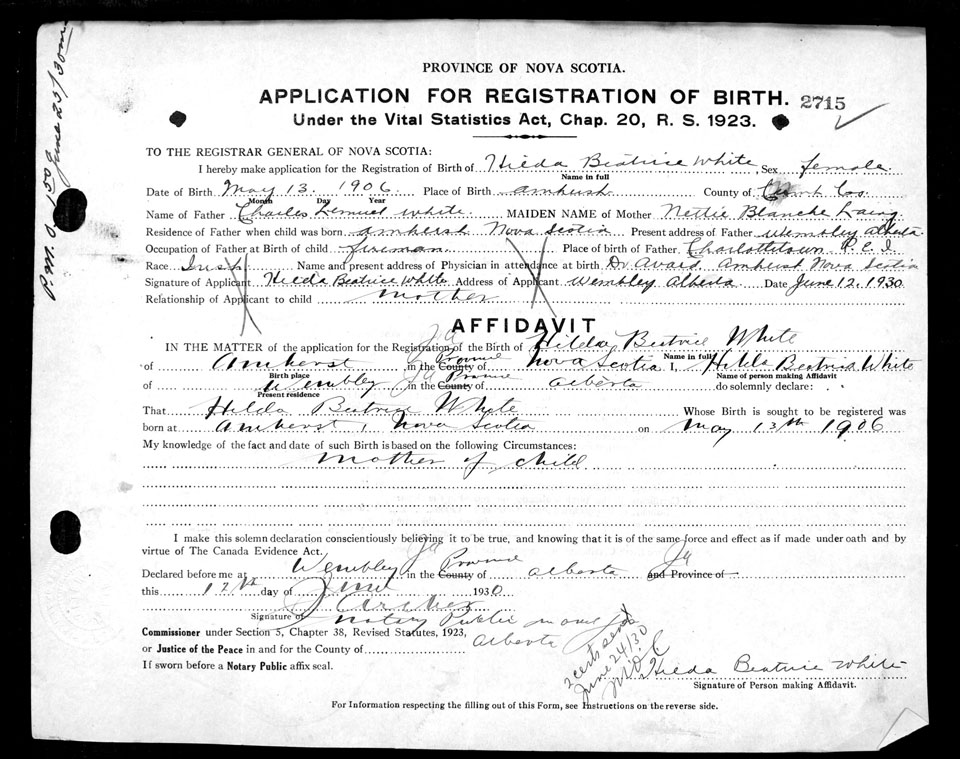 P.M.O. 1.50 June 25/30
PROVINCE OF NOVA SCOTIA.
APPLICATION FOR REGISTRATION OF BIRTH. 2715
Under the Vital Statistics Act, Chap. 20, R. S. 1923.
TO THE REGISTRAR GENERAL OF NOVA SCOTIA:
I hereby make application for the Registration of Birth of Hilda Beatrice White Sex female
Name in full
Date of Birth May 13. 1906. Place of Birth Amherst County of Cos
Month Day Year
Name of Father Charles Lemuel White. MAIDEN NAME of Mother Nettie Blanche Laing
Residence of Father when child was born Amherst Nova Scotia Present address of Father Wembley Alberta
Occupation of Father at Birth of child fireman Place of birth of Father Charlottetown P.E.I.
Race Irish Name and present address of Physician in attendance at birth Dr Avard Amherst Nova Scotia
Signature of Applicant Hilda Beatrice White Address of Applicant Wembley Alberta Date June 12, 1930
Relationship of Applicant to child mother
AFFIDAVIT
IN THE MATTER of the application for the Registration of the Birth of Hilda Beatrice White
Name in full
of Amherst in the County Province of Nova Scotia I, Hilda Beatrice White
Birth place Name of person making Affidavit
of Wembley in the County Province of Alberta do solemnly declare:
Present residence
That Hilda Beatrice White Whose Birth is sought to be registered was
born at Amherst, Nova Scotia on May 13th 1906
My knowledge of the fact and date of such Birth is based on the following Circumstances:
mother of child
I make this solemn declaration conscientiously believing it to be true, and knowing that it is of the same force and effect as if made under oath and by
virtue of The Canada Evidence Act.
Declared before me at Wembley in the County Province of Alberta and Province of
this 12th day of June 1930
Archer
Signature of Notary Public in and for
Commissioner under Section 5, Chapter 38, Revised Statutes, 1923,
or Justice of the Peace in and for the County of Alberta
If sworn before a Notary Public affix seal.
2 certs sent
June 24/30
Hilda Beatrice White
Signature of Person making Affidavit.
For Information respecting the filling out of this Form, see Instructions on the reverse side.